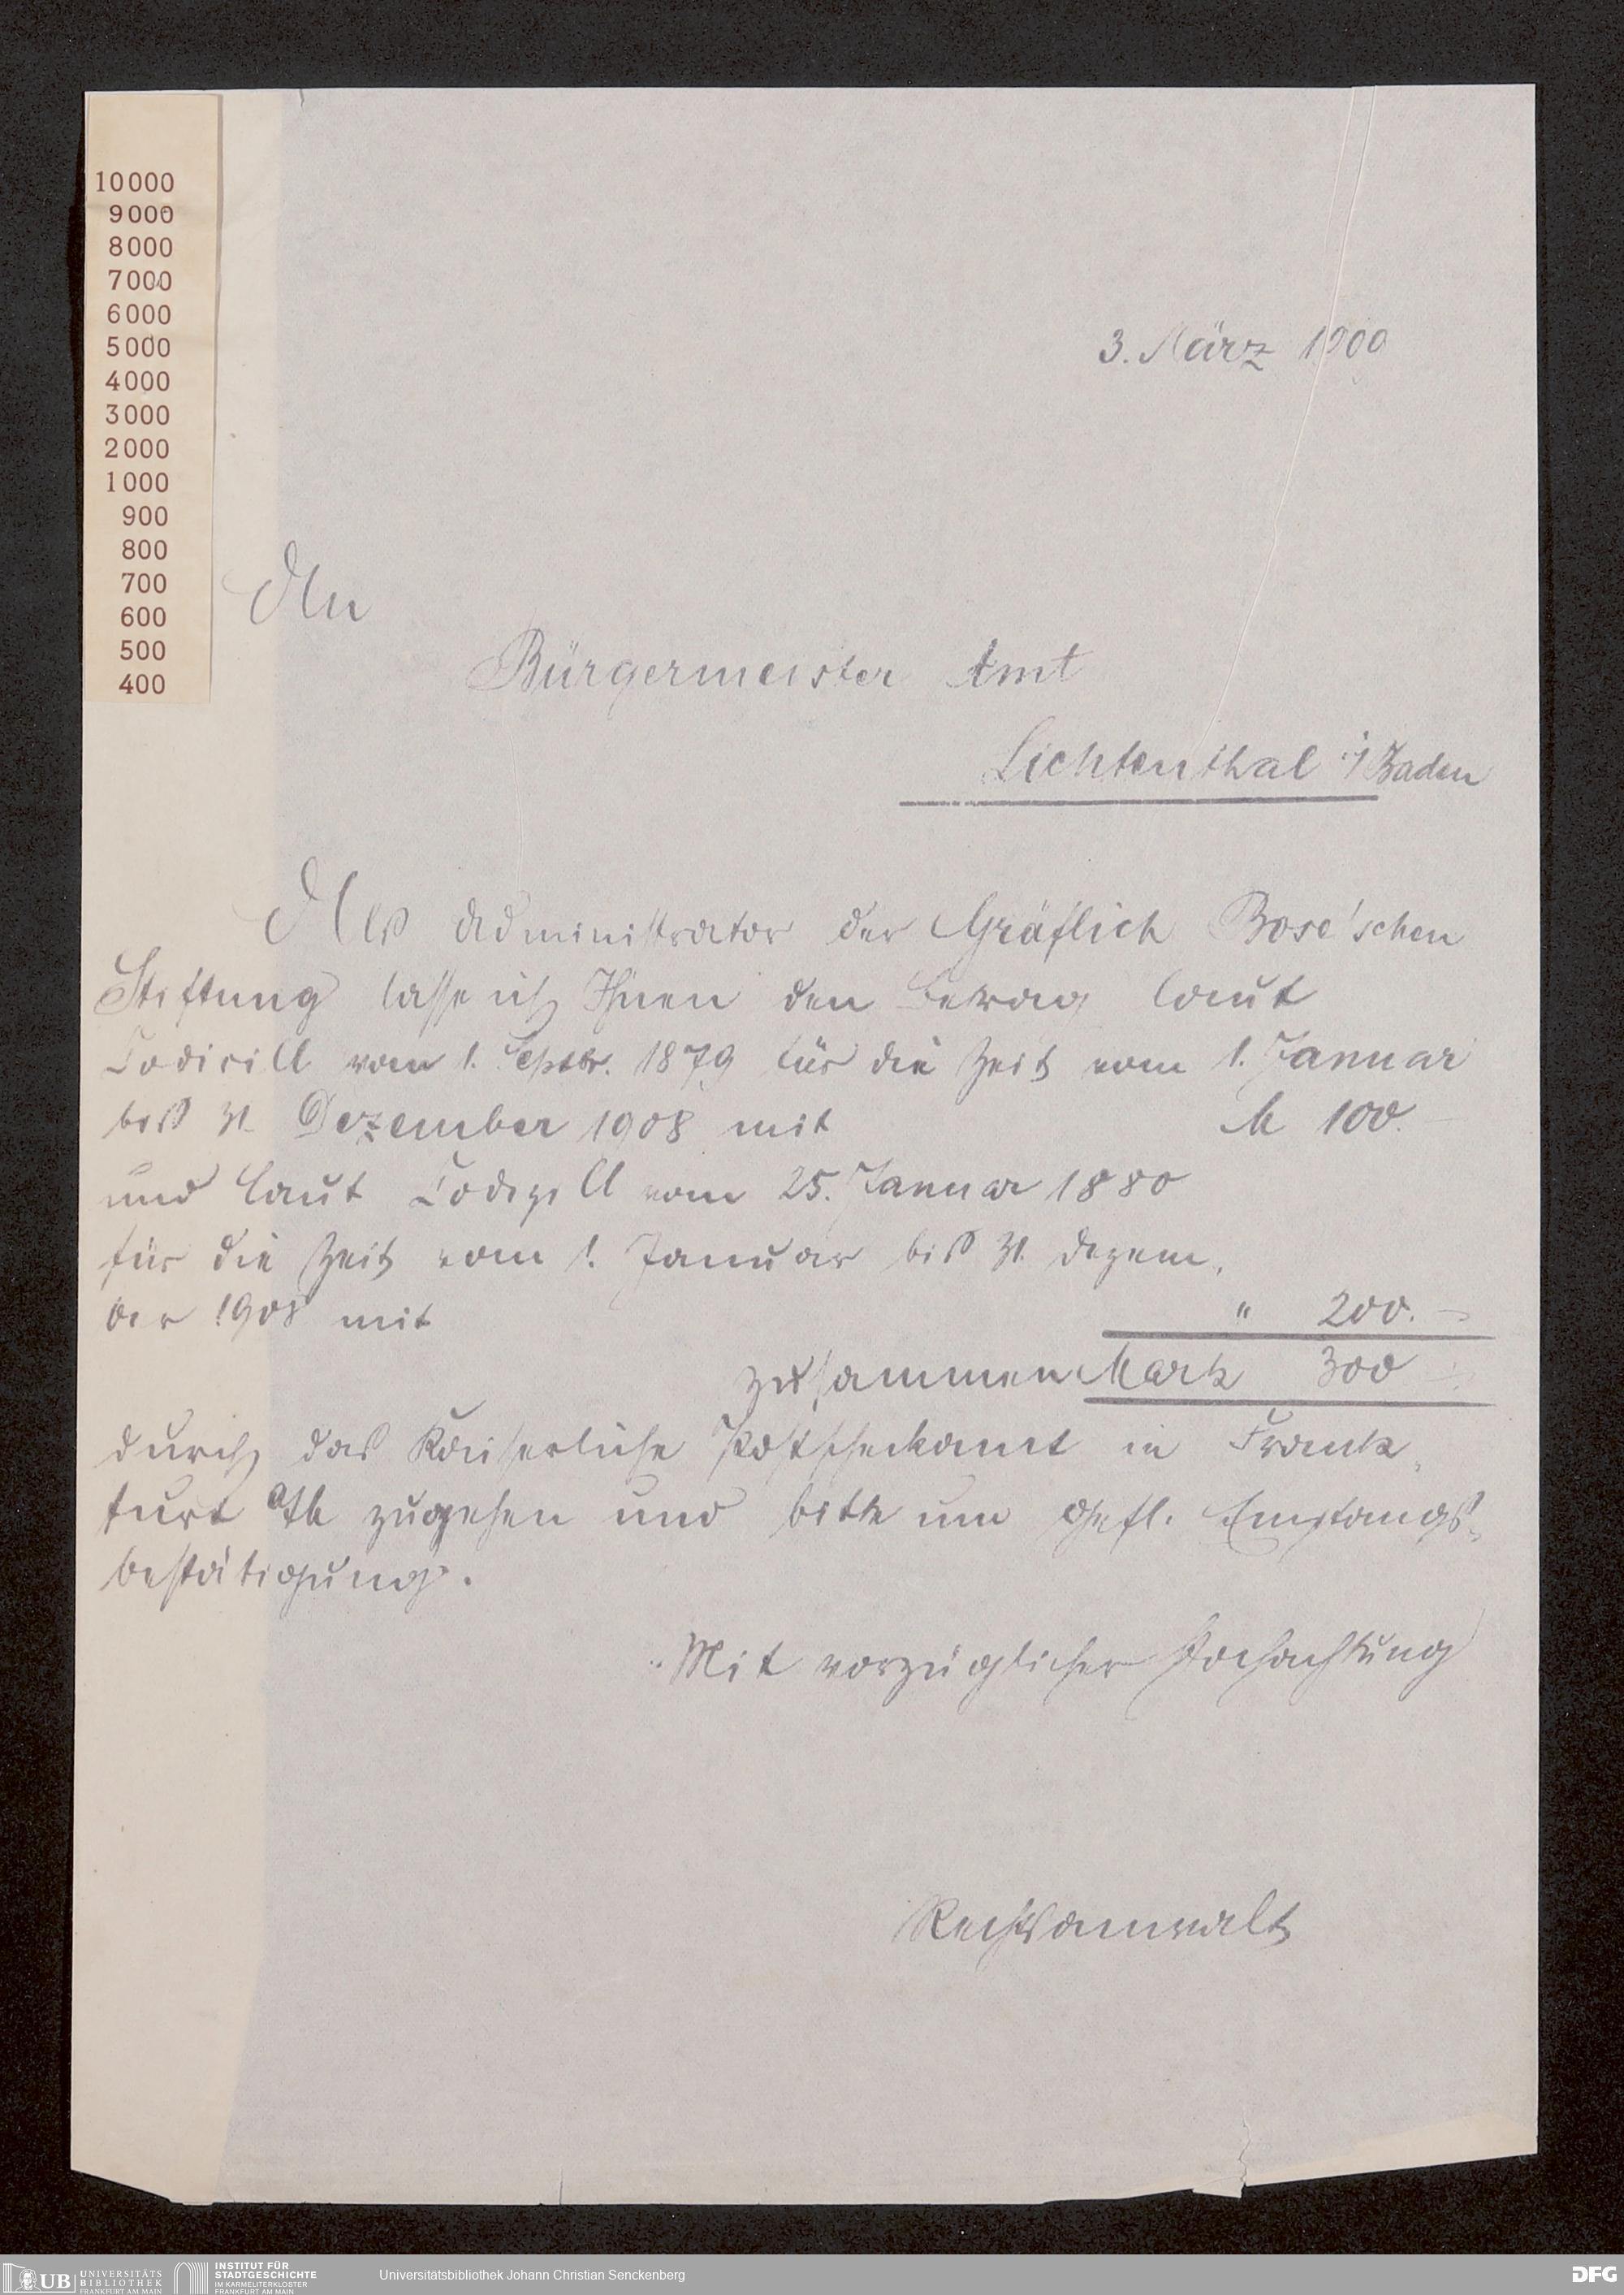 10000
9000
8000
7000
6000
5000
4000
3000
2000
1000
900
800
700
600
500
400
3. März 1900
An
Bürgermeister Amt
Lichtenthal i/Baden
Als Administrator der Gräflich Bose'schen
Stiftung lasse ich Ihnen den Betrag laut
Codicill vom 1. Septbr. 1879 für die Zeit vom 1. Januar
bis 31. Dezember 1908 mit M 100.–
und laut Codizill vom 25. Januar 1880
für die Zeit vom 1. Januar bis 31. Dezem-
ber 1908 mit " 200.–
zusammen Mark 300
durch das Kaiserliche Postscheckamt in Frank-
furt a/M zugehen und bitte um gefl. Empfangs-
bestätigung.
Mit vorzüglicher Hochachtung
Rechtsanwalt
UB UNIVERSITÄTS
BIBLIOTHEK
FRANKFURT AM MAIN
INSTITUT FÜR
STADTGESCHICHTE
IM KARMELITERKLOSTER
FRANKFURT AM MAIN
Universitätsbibliothek Johann Christian Senckenberg
DFG